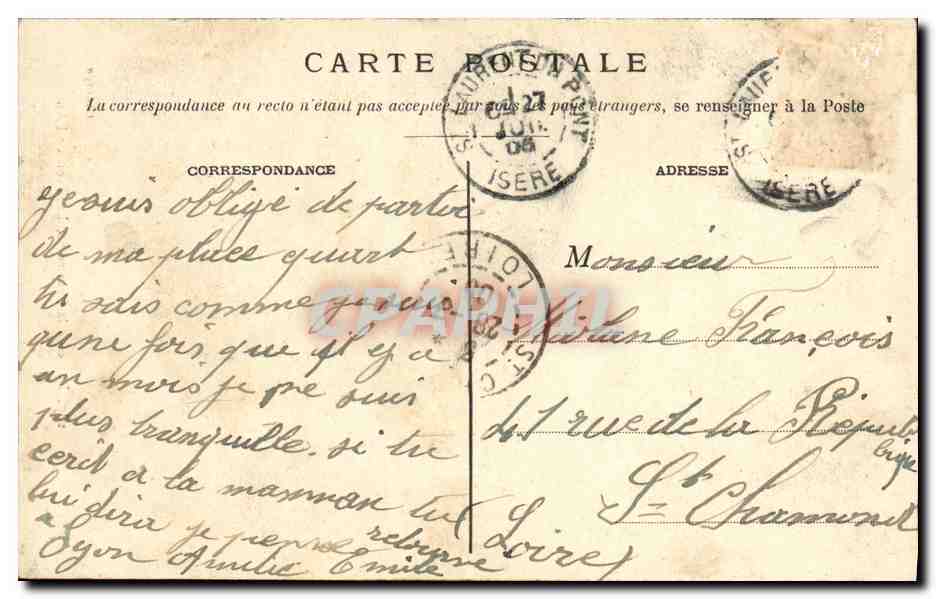 CARTE POSTALE
La correspondance au recto n'étant pas acceptée par tous les pays étrangers, se renseigner à la Poste
CORRESPONDANCE
ADRESSE
ST LAURENT DU PONT
27
JUIL
06
ISERE
ISERE
LOIRE
ST C
28
CPAPHIL
je suis obligé de partir
de ma place quart
tu sais comme je suis
qune fois que il y a
un mois je ne suis
plus tranquille si tu
ecrit a la maman tu
lui dira je pense retourne
a Lyon Emile
Monsieur
François
41 rue de la Républ
ique
St Chamond
(Loire)